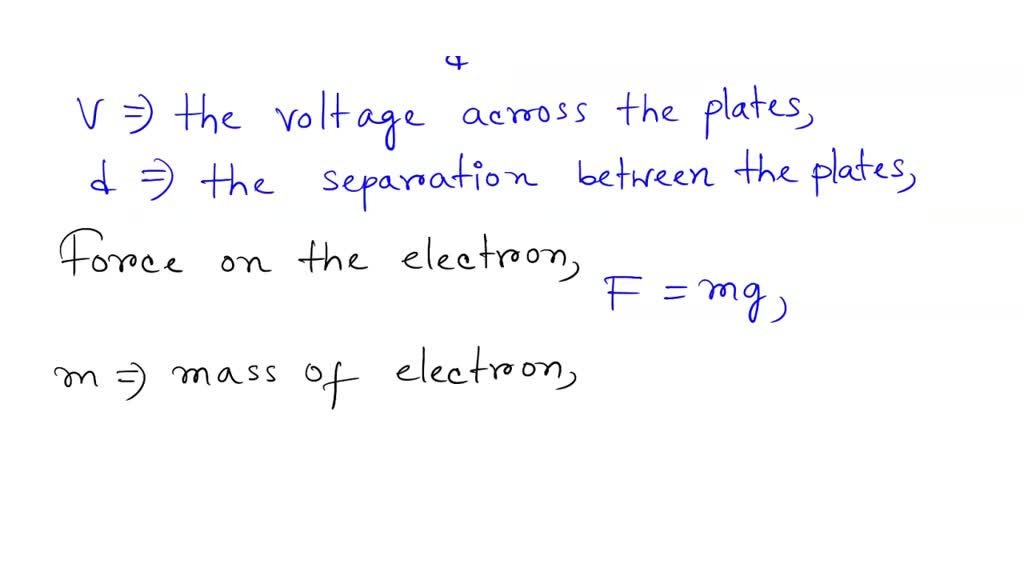 V ⇒ the voltage across the plates,
d ⇒ the separation between the plates,
Force on the electron,
F = mg,
m ⇒ mass of electron,